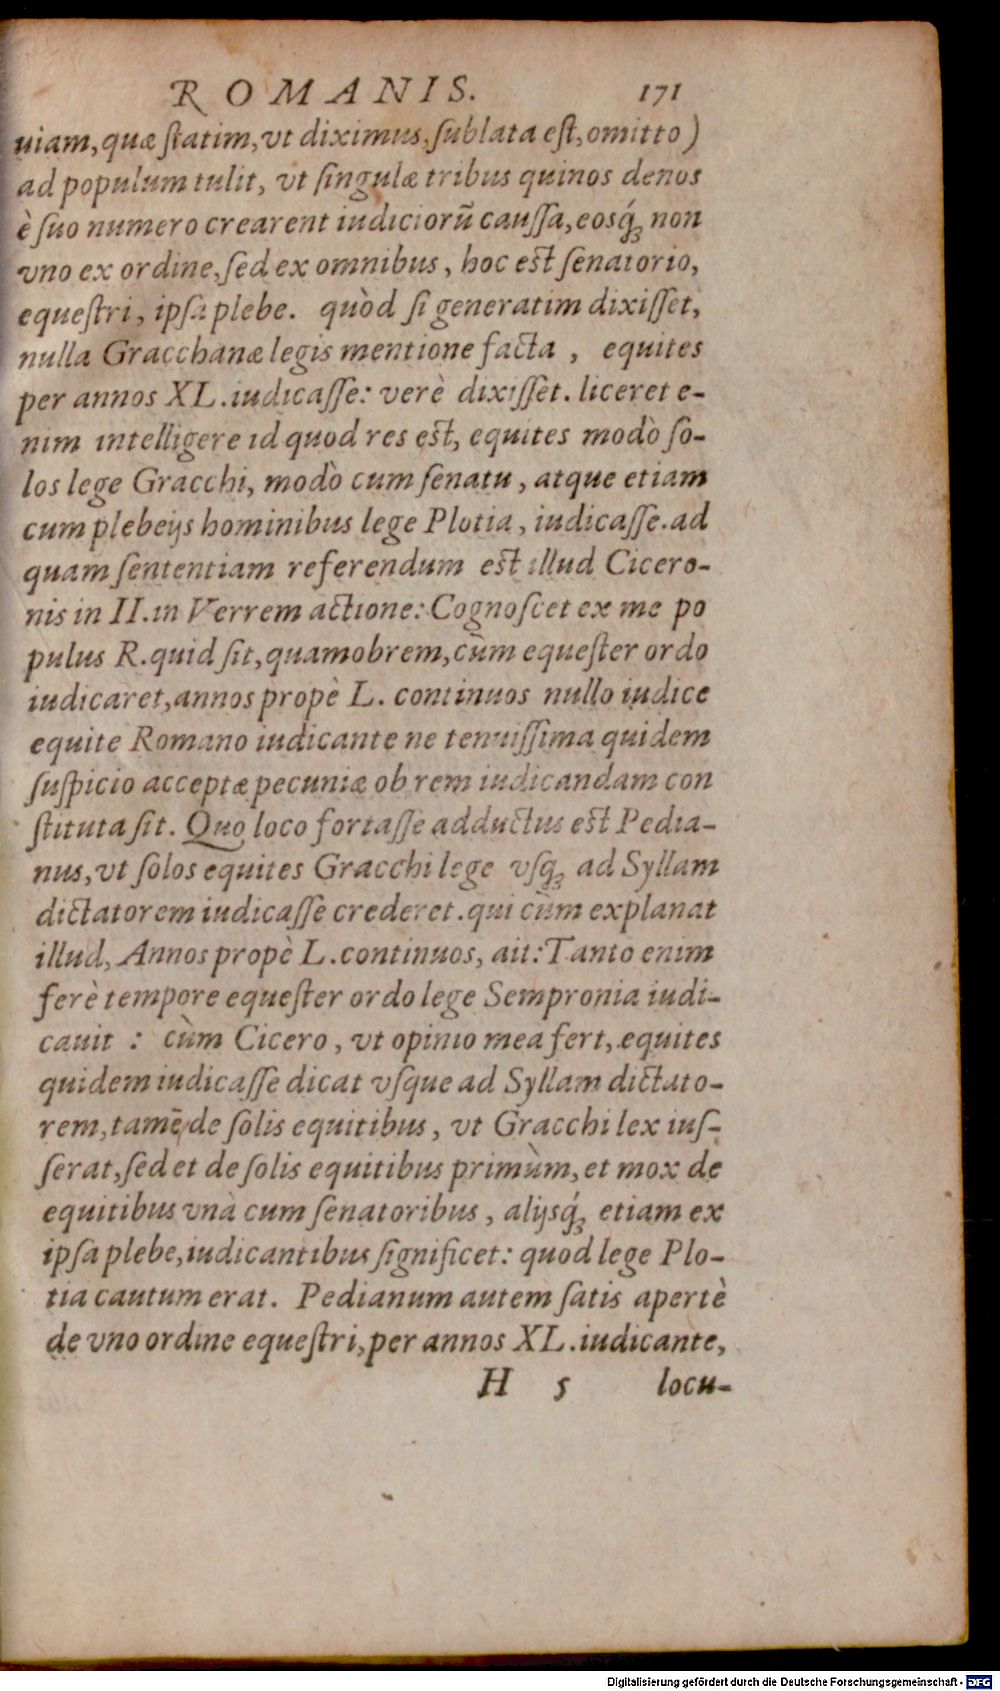 ROMANIS. 171
uiam, quæ ſtatim, vt diximus, ſublata eſt, omitto)
ad populum tulit, vt ſingulæ tribus quinos denos
è ſuo numero crearent iudiciorū cauſſa, eosq́ꝫ non
vno ex ordine, ſed ex omnibus, hoc eſt ſenatorio,
equeſtri, ipſa plebe. quòd ſi generatim dixiſſet,
nulla Gracchanæ legis mentione facta, equites
per annos XL. iudicaſſe: verè dixiſſet. liceret e-
nim intelligere id quod res eſt, equites modò ſo-
los lege Gracchi, modò cum ſenatu, atque etiam
cum plebeijs hominibus lege Plotia, iudicaſſe. ad
quam ſententiam referendum eſt illud Cicero-
nis in II. in Verrem actione: Cognoſcet ex me po
pulus R. quid ſit, quamobrem, cùm equeſter ordo
iudicaret, annos propè L. continuos nullo iudice
equite Romano iudicante ne tenuiſſima quidem
ſuſpicio acceptæ pecuniæ ob rem iudicandam con
ſtituta ſit. Quo loco fortaſſe adductus eſt Pedia-
nus, vt ſolos equites Gracchi lege vſq́ꝫ ad Syllam
dictatorem iudicaſſe crederet. qui cùm explanat
illud, Annos propè L. continuos, ait: Tanto enim
ferè tempore equeſter ordo lege Sempronia iudi-
cauit : cùm Cicero, vt opinio mea fert, equites
quidem iudicaſſe dicat vſque ad Syllam dictato-
rem, tamē de ſolis equitibus, vt Gracchi lex iuſ-
ſerat, ſed et de ſolis equitibus primùm, et mox de
equitibus vnà cum ſenatoribus, alijsq́ꝫ etiam ex
ipſa plebe, iudicantibus ſignificet: quod lege Plo-
tia cautum erat. Pedianum autem ſatis apertè
de vno ordine equeſtri, per annos XL. iudicante,
H 5 locu-
Digitalisierung gefördert durch die Deutsche Forschungsgemeinschaft - DFG